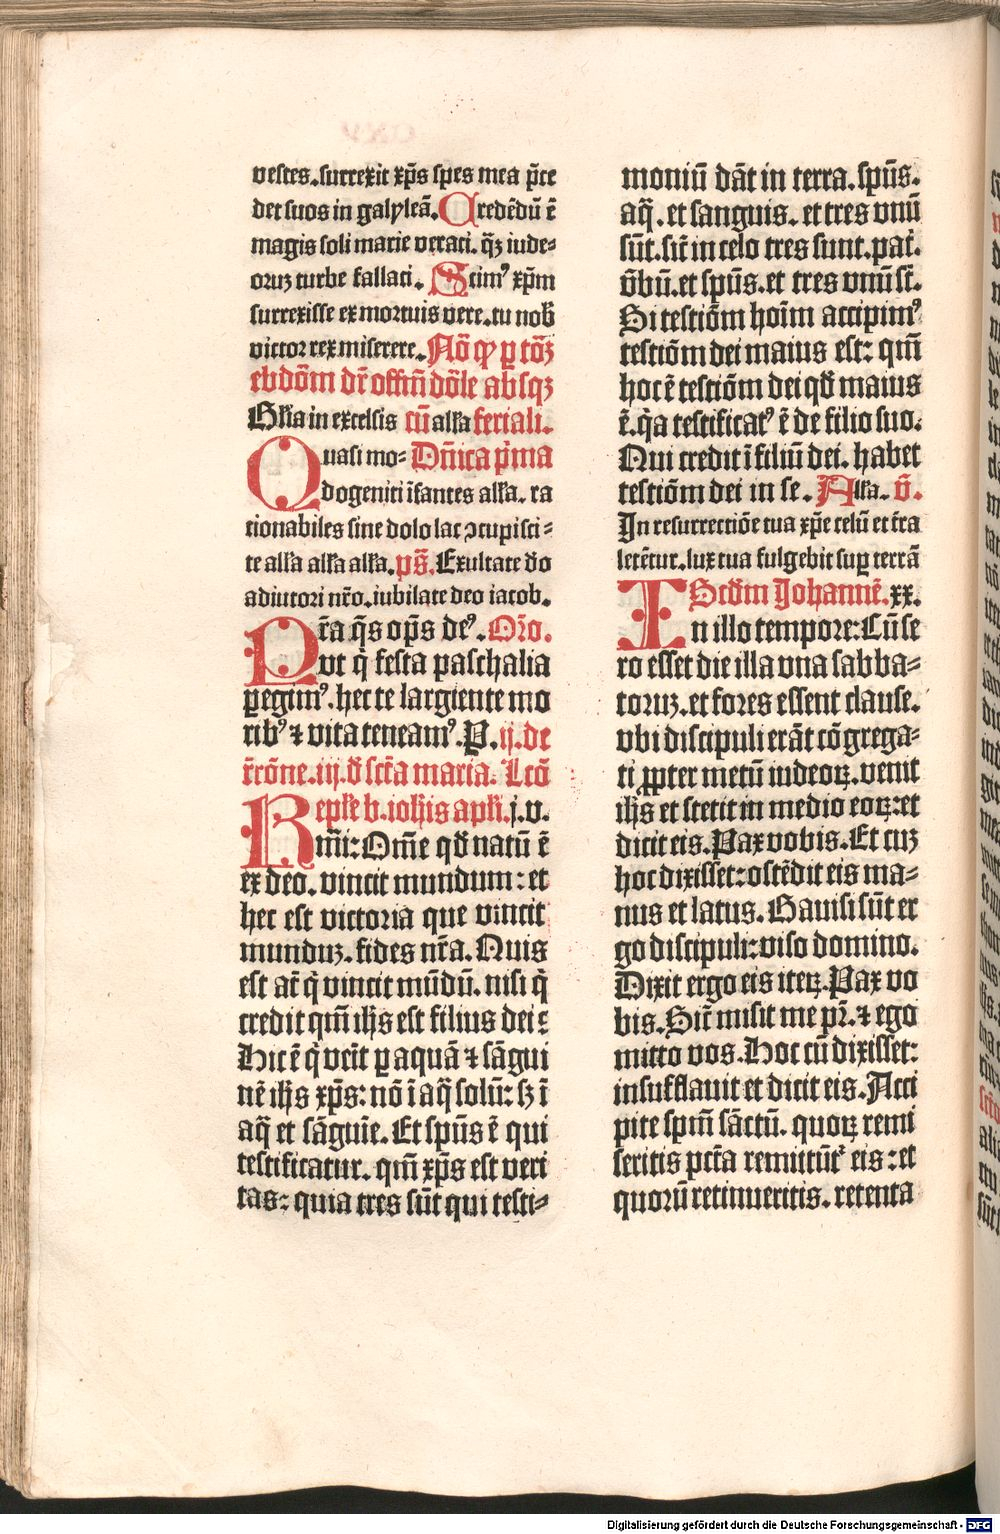 vestes. surrexit xp̄s spes mea p̄ce
det suos in galyleā. Credēdū ē
magis soli marie veraci. q̄ꝫ iude⸗
oruꝫ turbe fallaci. Scimꝰ xp̄m
surrexisse ex mortuis vere. tu nob̄
victor rex miserere. Nō ꝙ ꝑ tōꝫ
ebdōm dr̄ offm̄ dōle absqꝫ
Gl̄ia in excelsis cū all̄a feriali.
Quasi mo⸗ Dn̄ica p̄ma
dogeniti īfantes all̄a. ra
tionabiles sine dolo lac ↄcupisci⸗
te all̄a all̄a all̄a. ps̄. Exultate d̄o
adiutori nr̄o. iubilate deo iacob.
Pr̄a q̄s op̄s deꝰ. Or̄o.
vt q̄ festa paschalia
ꝑegimꝰ. hec te largiente mo
ribꝰ ⁊ vita teneamꝰ. P. ij. de
r̄rōne. iij. d̄ sct̄a maria. Lcō
Repl̄e b. ioh̄is apl̄i. j. v.
Km̄i: Om̄e qd̄ natū ē
ex deo. vincit mundum: et
hec est victoria que vincit
munduꝫ. fides nr̄a. Quis
est at̄ q̄ vincit mūdū. nisi q̄
credit qm̄ ih̄s est filius dei:
Hic ē q̄ vēit ꝑ aquā ⁊ sāgui
nē ih̄s xp̄s: nō ī aq̄ solū: sꝫ ī
aq̄ et sāguīe. Et spūs ē qui
testificatur. qm̄ xp̄s est veri
tas: quia tres sūt qui testi⸗
moniū dāt in terra. spūs.
aq̄. et sanguis. et tres vnū
sūt. sūt in celo tres sunt. pat̄.
v̄bū. et spūs. et tres vnū st̄.
Si testiōm hoīm accipimꝰ
testiōm dei maius est: qm̄
hoc ē testiōm dei qd̄ maius
ē. q̄a testificatꝰ ē de filio suo.
Qui credit ī filiū dei. habet
testiōm dei in se. All̄a. v̄.
In resurrectiōe tua xp̄e celū et t̄ra
letēt̄ur. lux tua fulgebit suꝑ terrā
Scd̄m Johannē. xx.
In illo tempore: Cū se
ro esset die illa vna sabba⸗
toruꝫ. et fores essent clause.
vbi discipuli erāt cōgrega⸗
ti ꝓpter metū iudeoꝝ. venit
ih̄s et stetit in medio eoꝝ: et
dicit eis. Pax vobis. Et cuꝫ
hoc dixisset: ostēdit eis ma⸗
nus et latus. Gauisi sūt er
go discipuli: viso domino.
Dixit ergo eis iteꝝ. Pax vo
bis. Sic̄ misit me pr̄. ⁊ ego
mitto vos. Hoc cū dixisset:
insufflauit et dicit eis. Acci
pite spm̄ sāctū. quoꝝ remi
seritis pct̄a remittūt̄ eis: et
quorū retinueritis. retenta
Digitalisierung gefördert durch die Deutsche Forschungsgemeinschaft - DFG